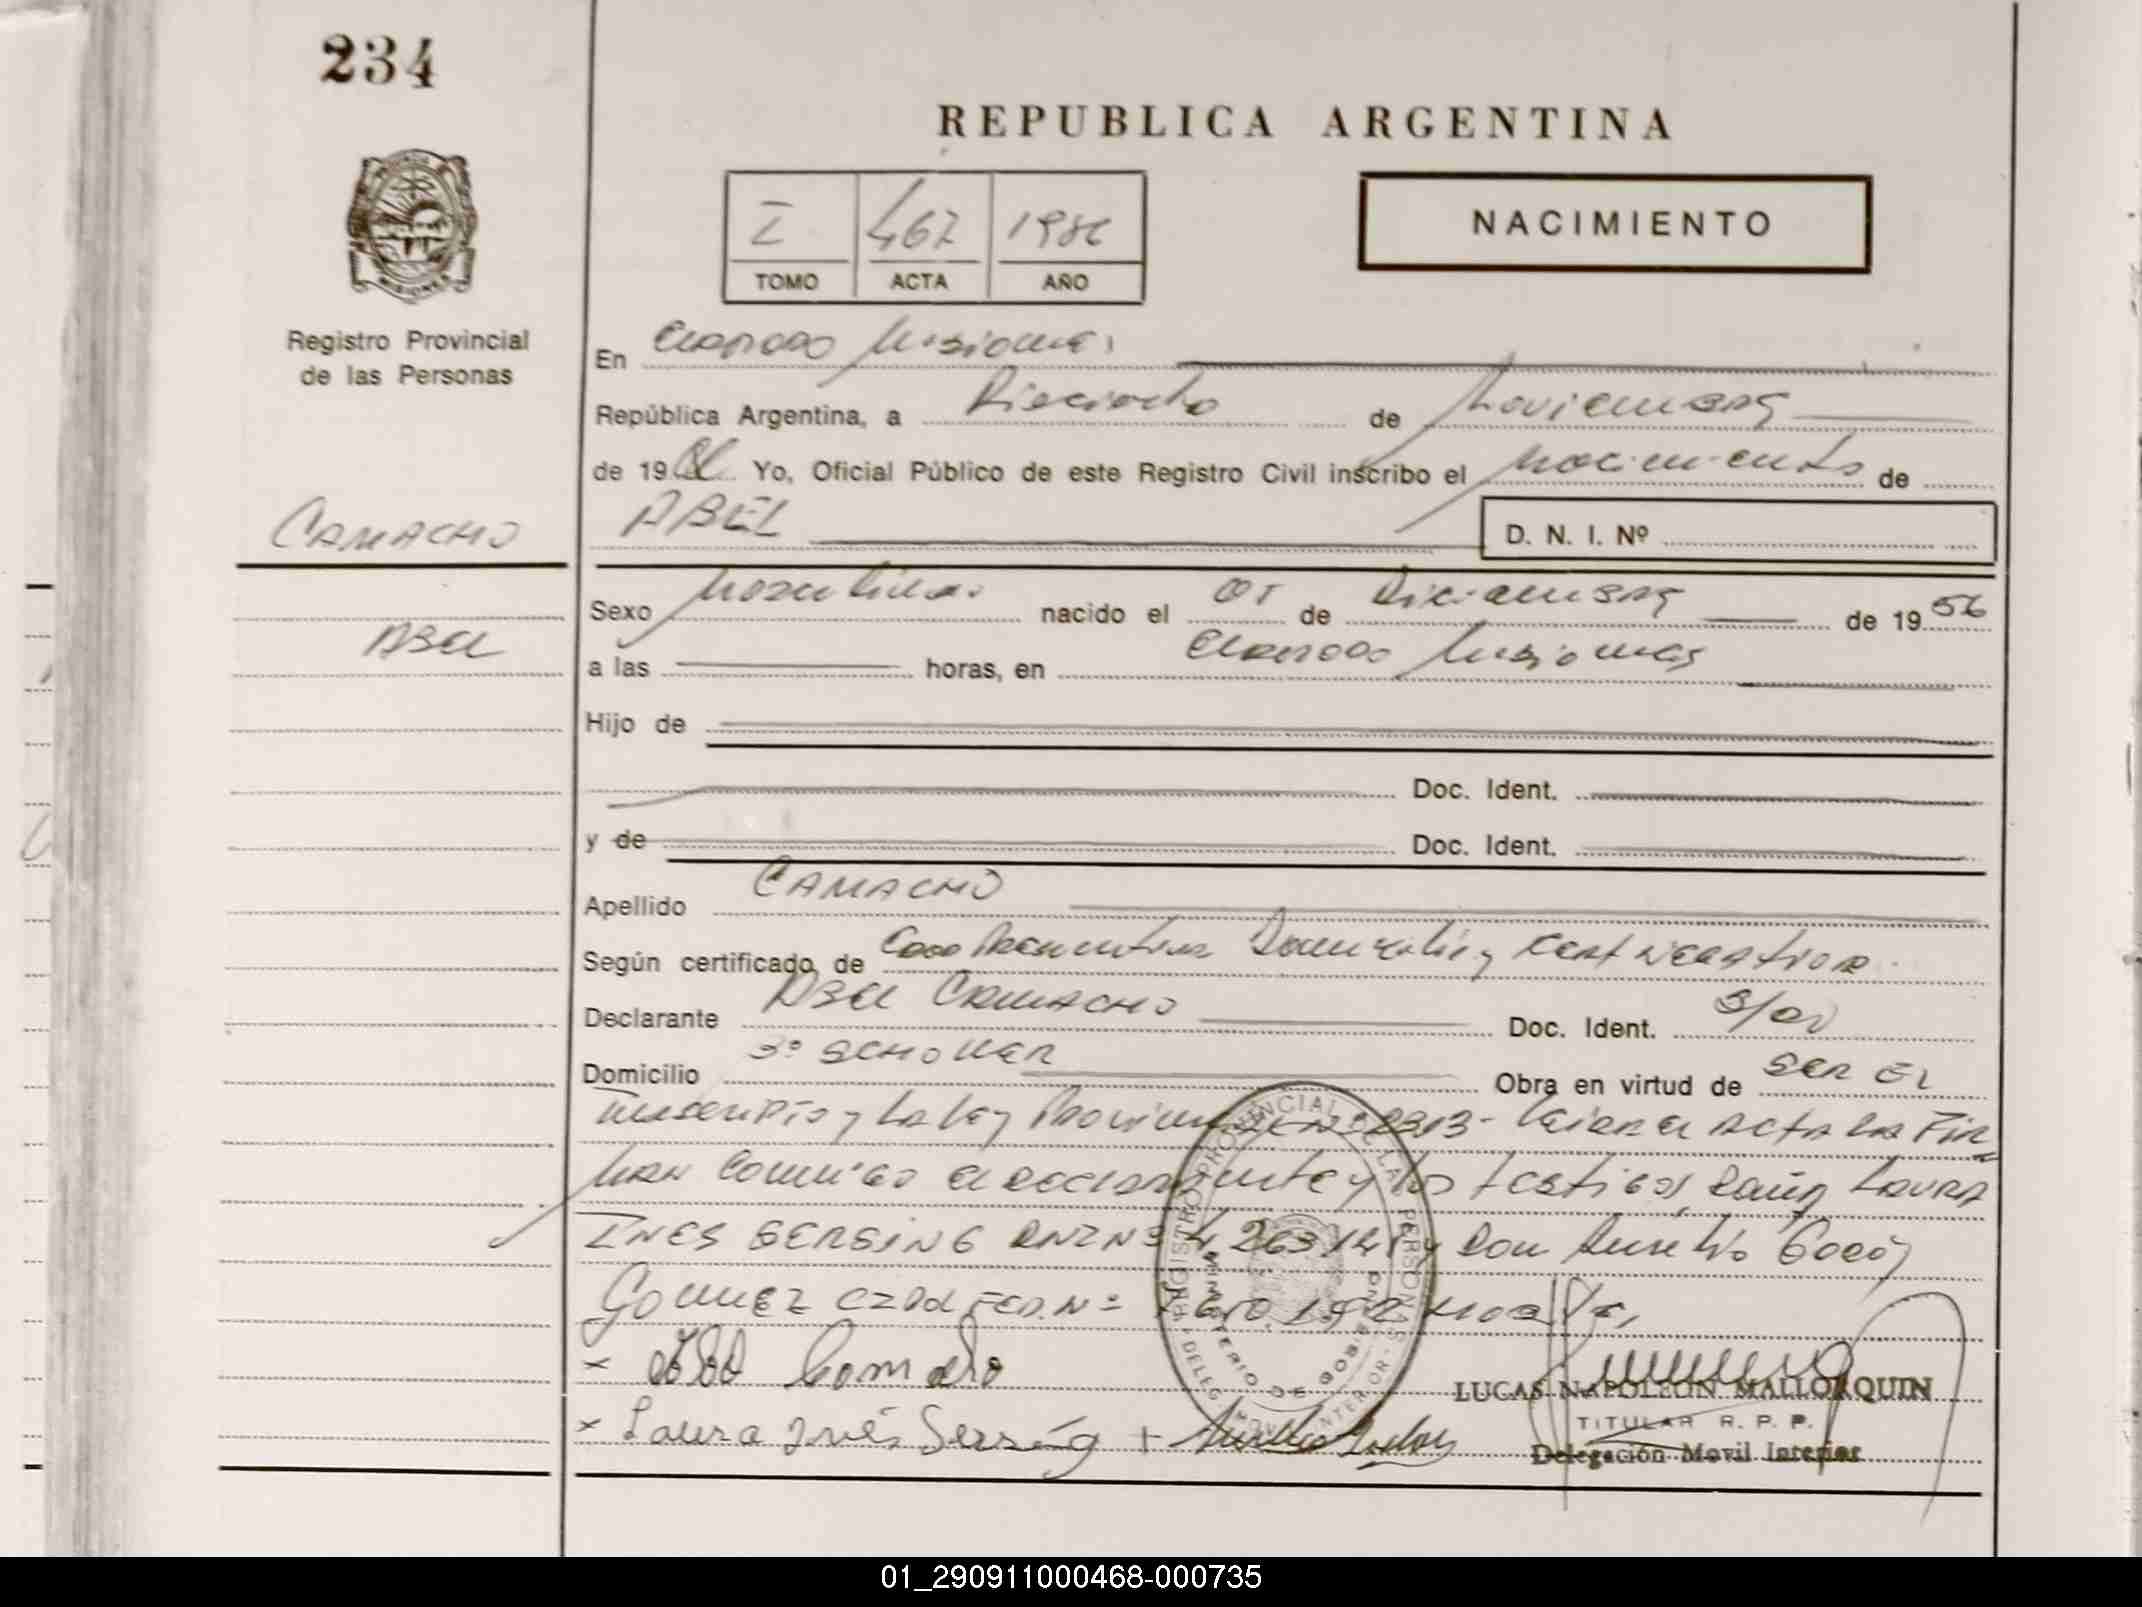 234
REPUBLICA ARGENTINA
I 467
TOMO ACTA AÑO
NACIMIENTO
MISIONES
Registro Provincial
de las Personas
En Eldorado Misiones
República Argentina, a Dieciocho de Noviembre
de 19 Yo, Oficial Público de este Registro Civil inscribo el Nacimiento de
CAMACHO
ABEL
D. N. I. Nº
Sexo Masculino nacido el 01 de Diciembre de 1956
Abel
a las horas, en Eldorado Misiones
Hijo de
Doc. Ident.
y de Doc. Ident.
Apellido CAMACHO
Según certificado de
Declarante Abel CAMACHO Doc. Ident.
Domicilio Obra en virtud de SER EL
Inscripto y La Ley Provincial Nº 2313 - Leida el Acta la Fir
man conmigo el declarante y los testigos, Doña Laura
INES Don Aurelio
GOMEZ
x Abel Camacho
x Laura Inés +
LUCAS NAPOLEON MALLORQUIN
TITULAR R. P. P.
Delegación Movil Interior
REGISTRO PROVINCIAL DE LAS PERSONAS
MINISTERIO DE GOBIERNO
DELEG. MOVIL INTERIOR
01_290911000468-000735